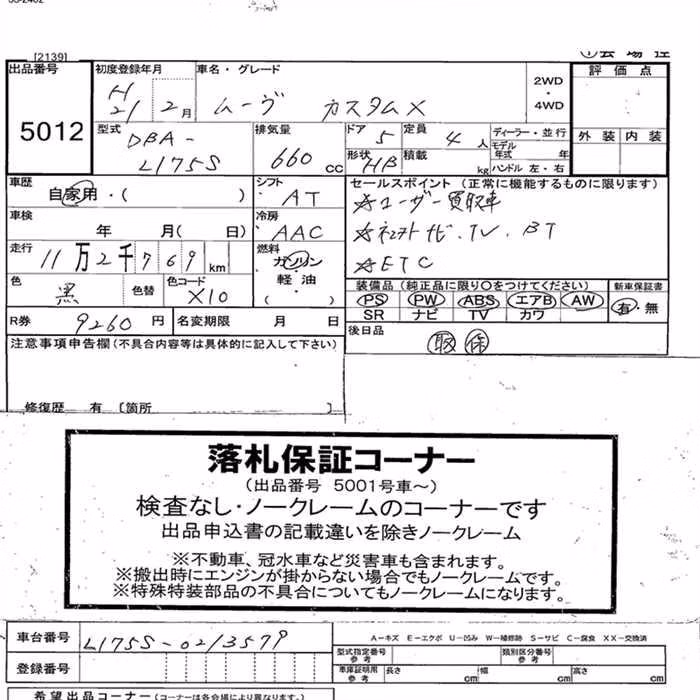 [2139]
出品番号
5012
初度登録年月
H 21 2月
車名・グレード
ムーヴ カスタムX
2WD
・
4WD
評価点
外装 内装
型式
DBA-
L175S
排気量
660 cc
ドア 5
定員 4人
形状 HB
積載 kg
ディーラー・並行
モデル年式 年
ハンドル 左・右
車歴
自家用・( )
シフト
AT
セールスポイント (正常に機能するものに限ります)
☆ユーザー買取車
☆ETC
車検
年 月( 日)
冷房
AAC
走行
11万2千769km
燃料
ガソリン
軽・油
色
黒
色替
色コード
X10
装備品 (純正品に限り○をつけてください)
PS PW ABS エアB AW
SR ナビ TV カワ
新車保証書
有・無
R券 9260円
名変期限 月 日
後日品
取 保
注意事項申告欄(不具合内容等は具体的に記入して下さい)
修復歴 有 [箇所 ]
落札保証コーナー
(出品番号 5001号車～)
検査なし・ノークレームのコーナーです
出品申込書の記載違いを除きノークレーム
※不動車、冠水車など災害車も含まれます。
※搬出時にエンジンが掛からない場合でもノークレームです。
※特殊特装部品の不具合についてもノークレームになります。
車台番号
L175S-0213579
A－キズ E－エクボ U－凹み W－補修跡 S－サビ C－腐食 XX－交換済
登録番号
型式指定番号
参考
類別区分番号
参考
車庫証明用
参考
長さ cm
幅 cm
高さ cm
希望出品コーナー(コーナーは各会場により異なります。)